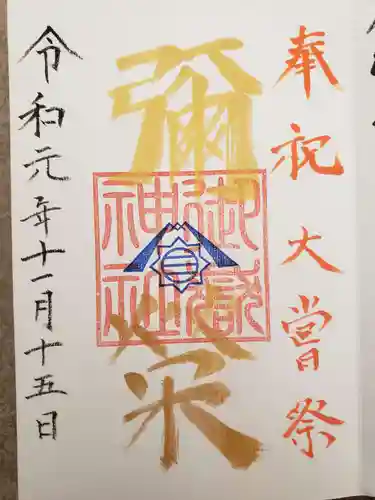 奉祝大嘗祭
彌栄
御嶽神社
令和元年十一月十五日